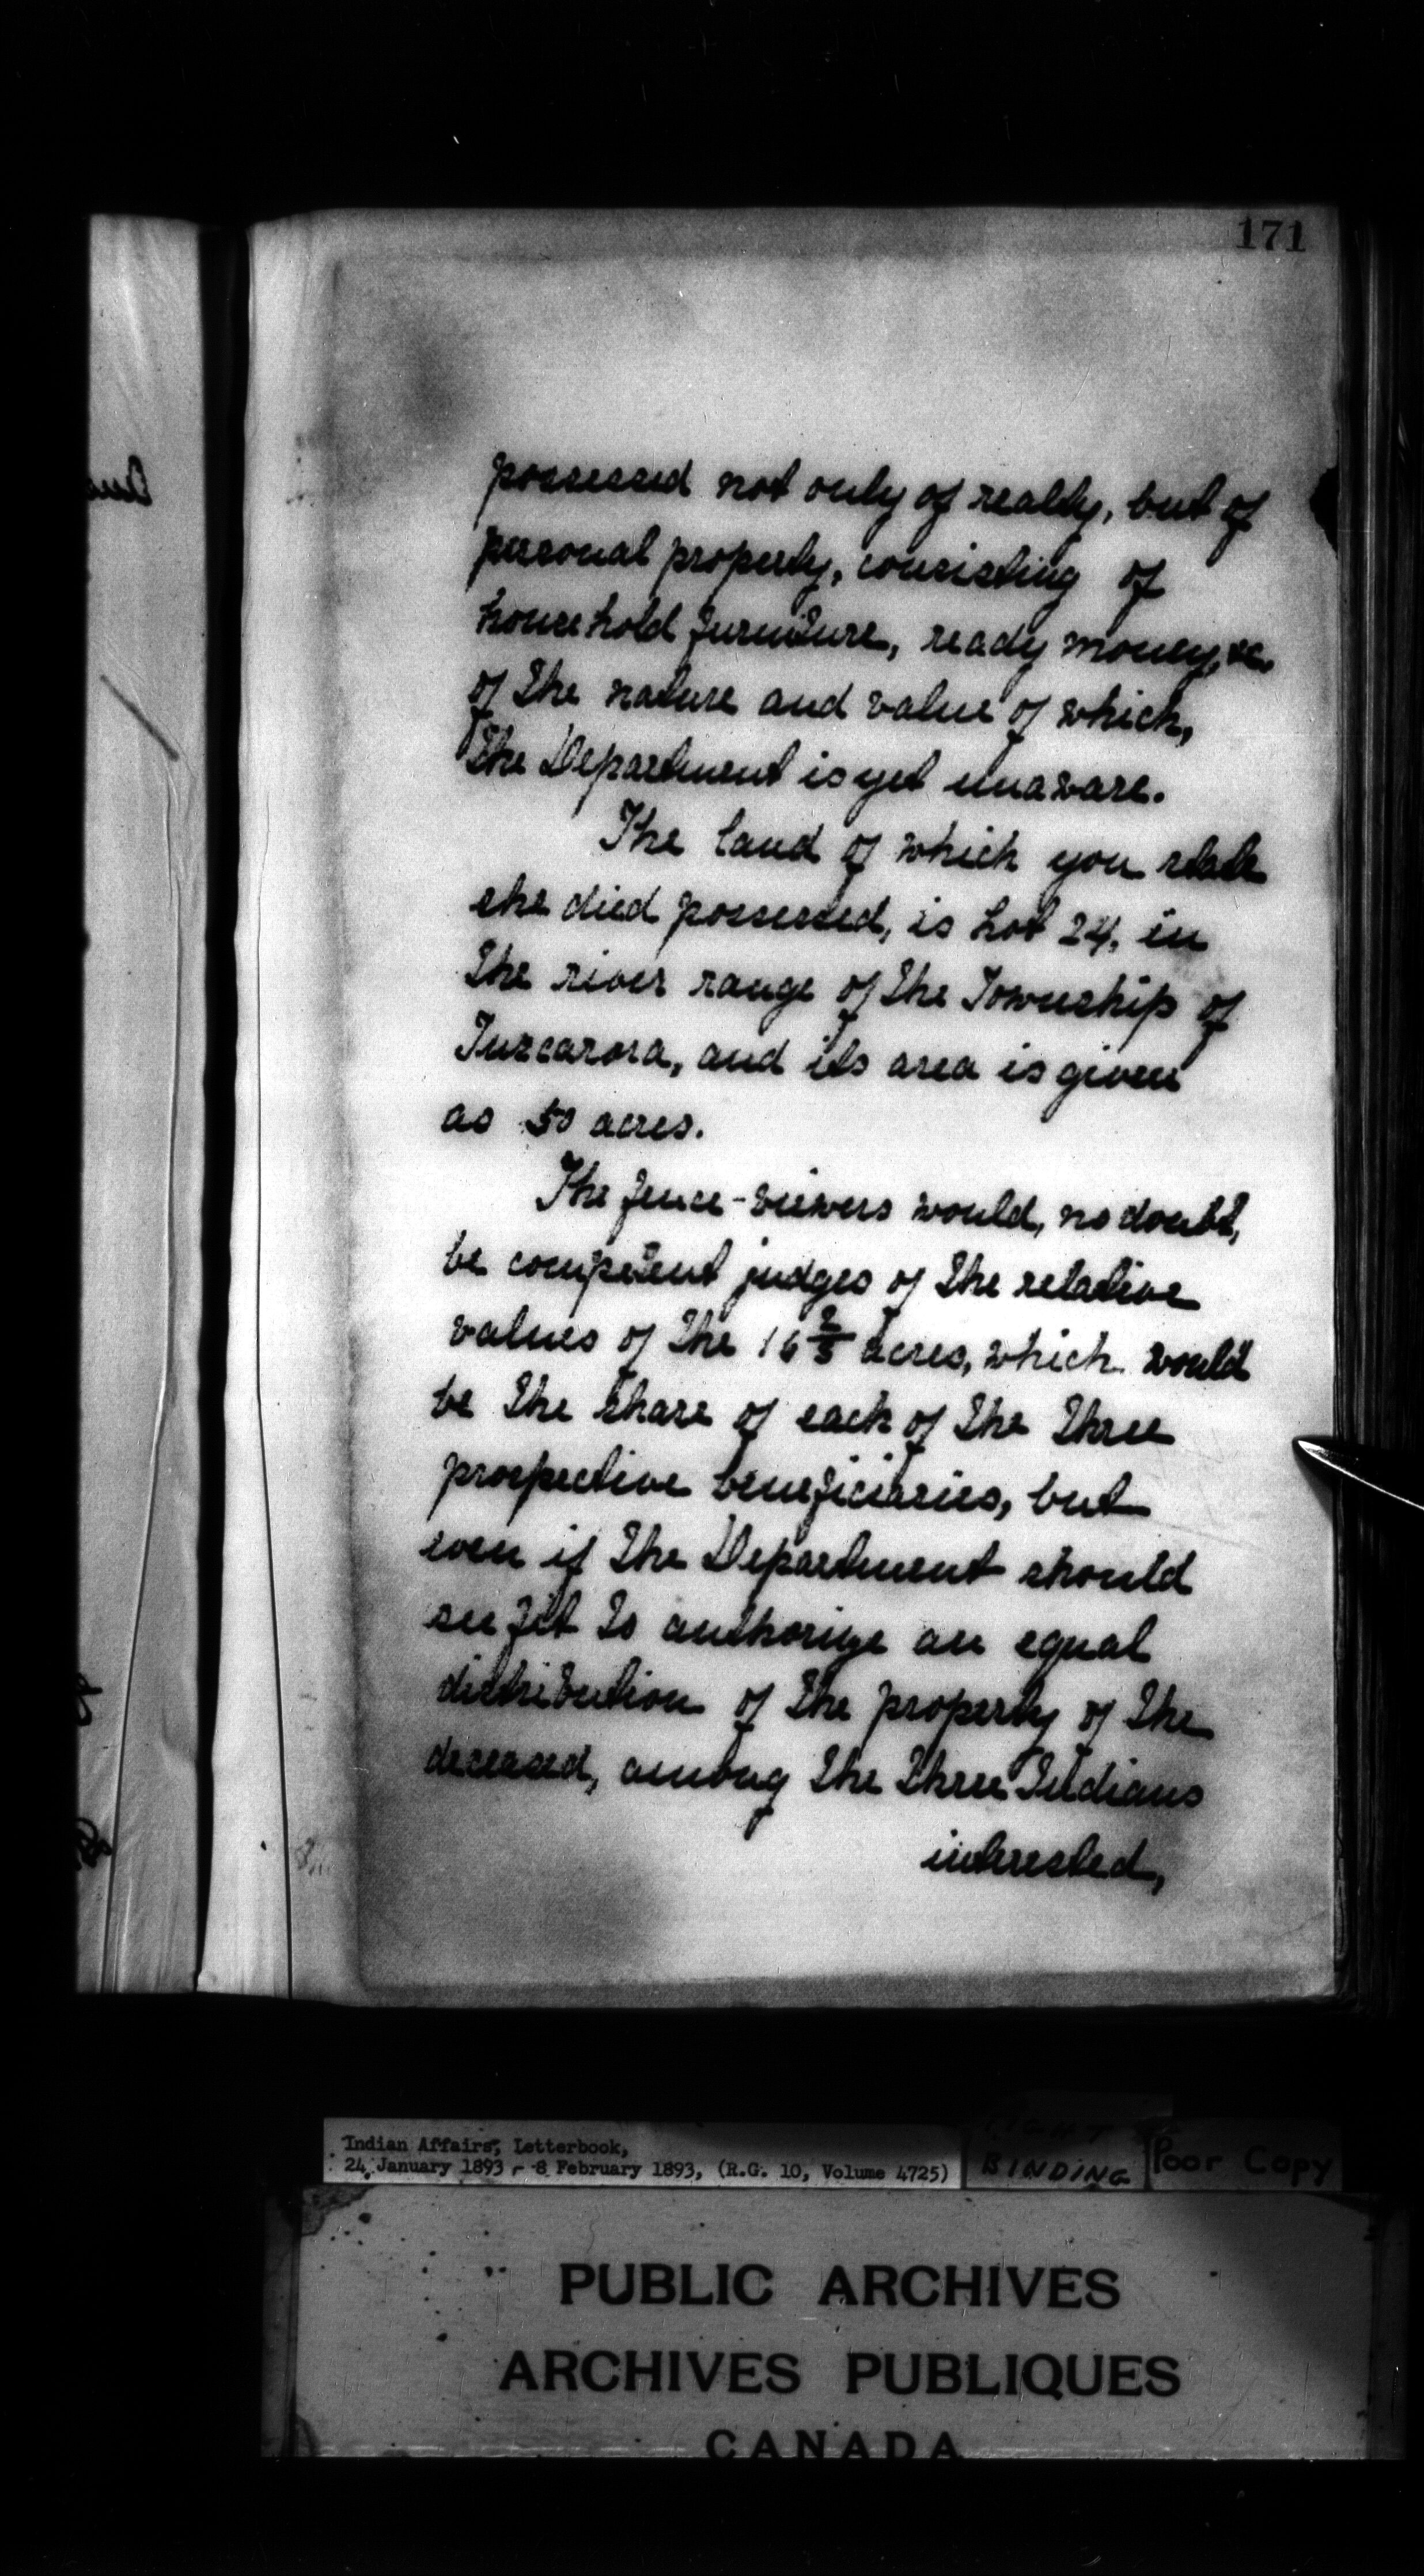 171
possessed not only of realty, but of
personal property, consisting of
household furniture, ready money, &c.
of the nature and value of which,
the Department is yet unaware.
The land of which you state
she died possessed, is Lot 24, in
the river range of the Township of
Tuscarora, and its area is given
as 50 acres.
The fence-viewers would, no doubt,
be competent judges of the relative
values of the 16 2/3 acres, which would
be the share of each of the three
prospective beneficiaries, but
even if the Department should
see fit to authorize an equal
distribution of the property of the
deceased, among the three Indians
interested,
Indian Affairs, Letterbook,
24 January 1893 - 8 February 1893, (R.G. 10, Volume 4725)
BINDING
Poor Copy
PUBLIC ARCHIVES
ARCHIVES PUBLIQUES
CANADA